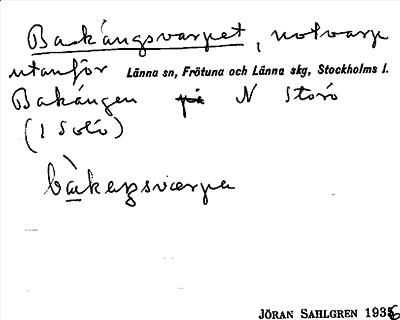 Backängsvarpet, notvarp
utanför Länna sn, Frötuna och Länna skg, Stockholms l.
Bakängen på N Storö
(1 Solö)
bakaŋsvarpa
JÖRAN SAHLGREN 1936